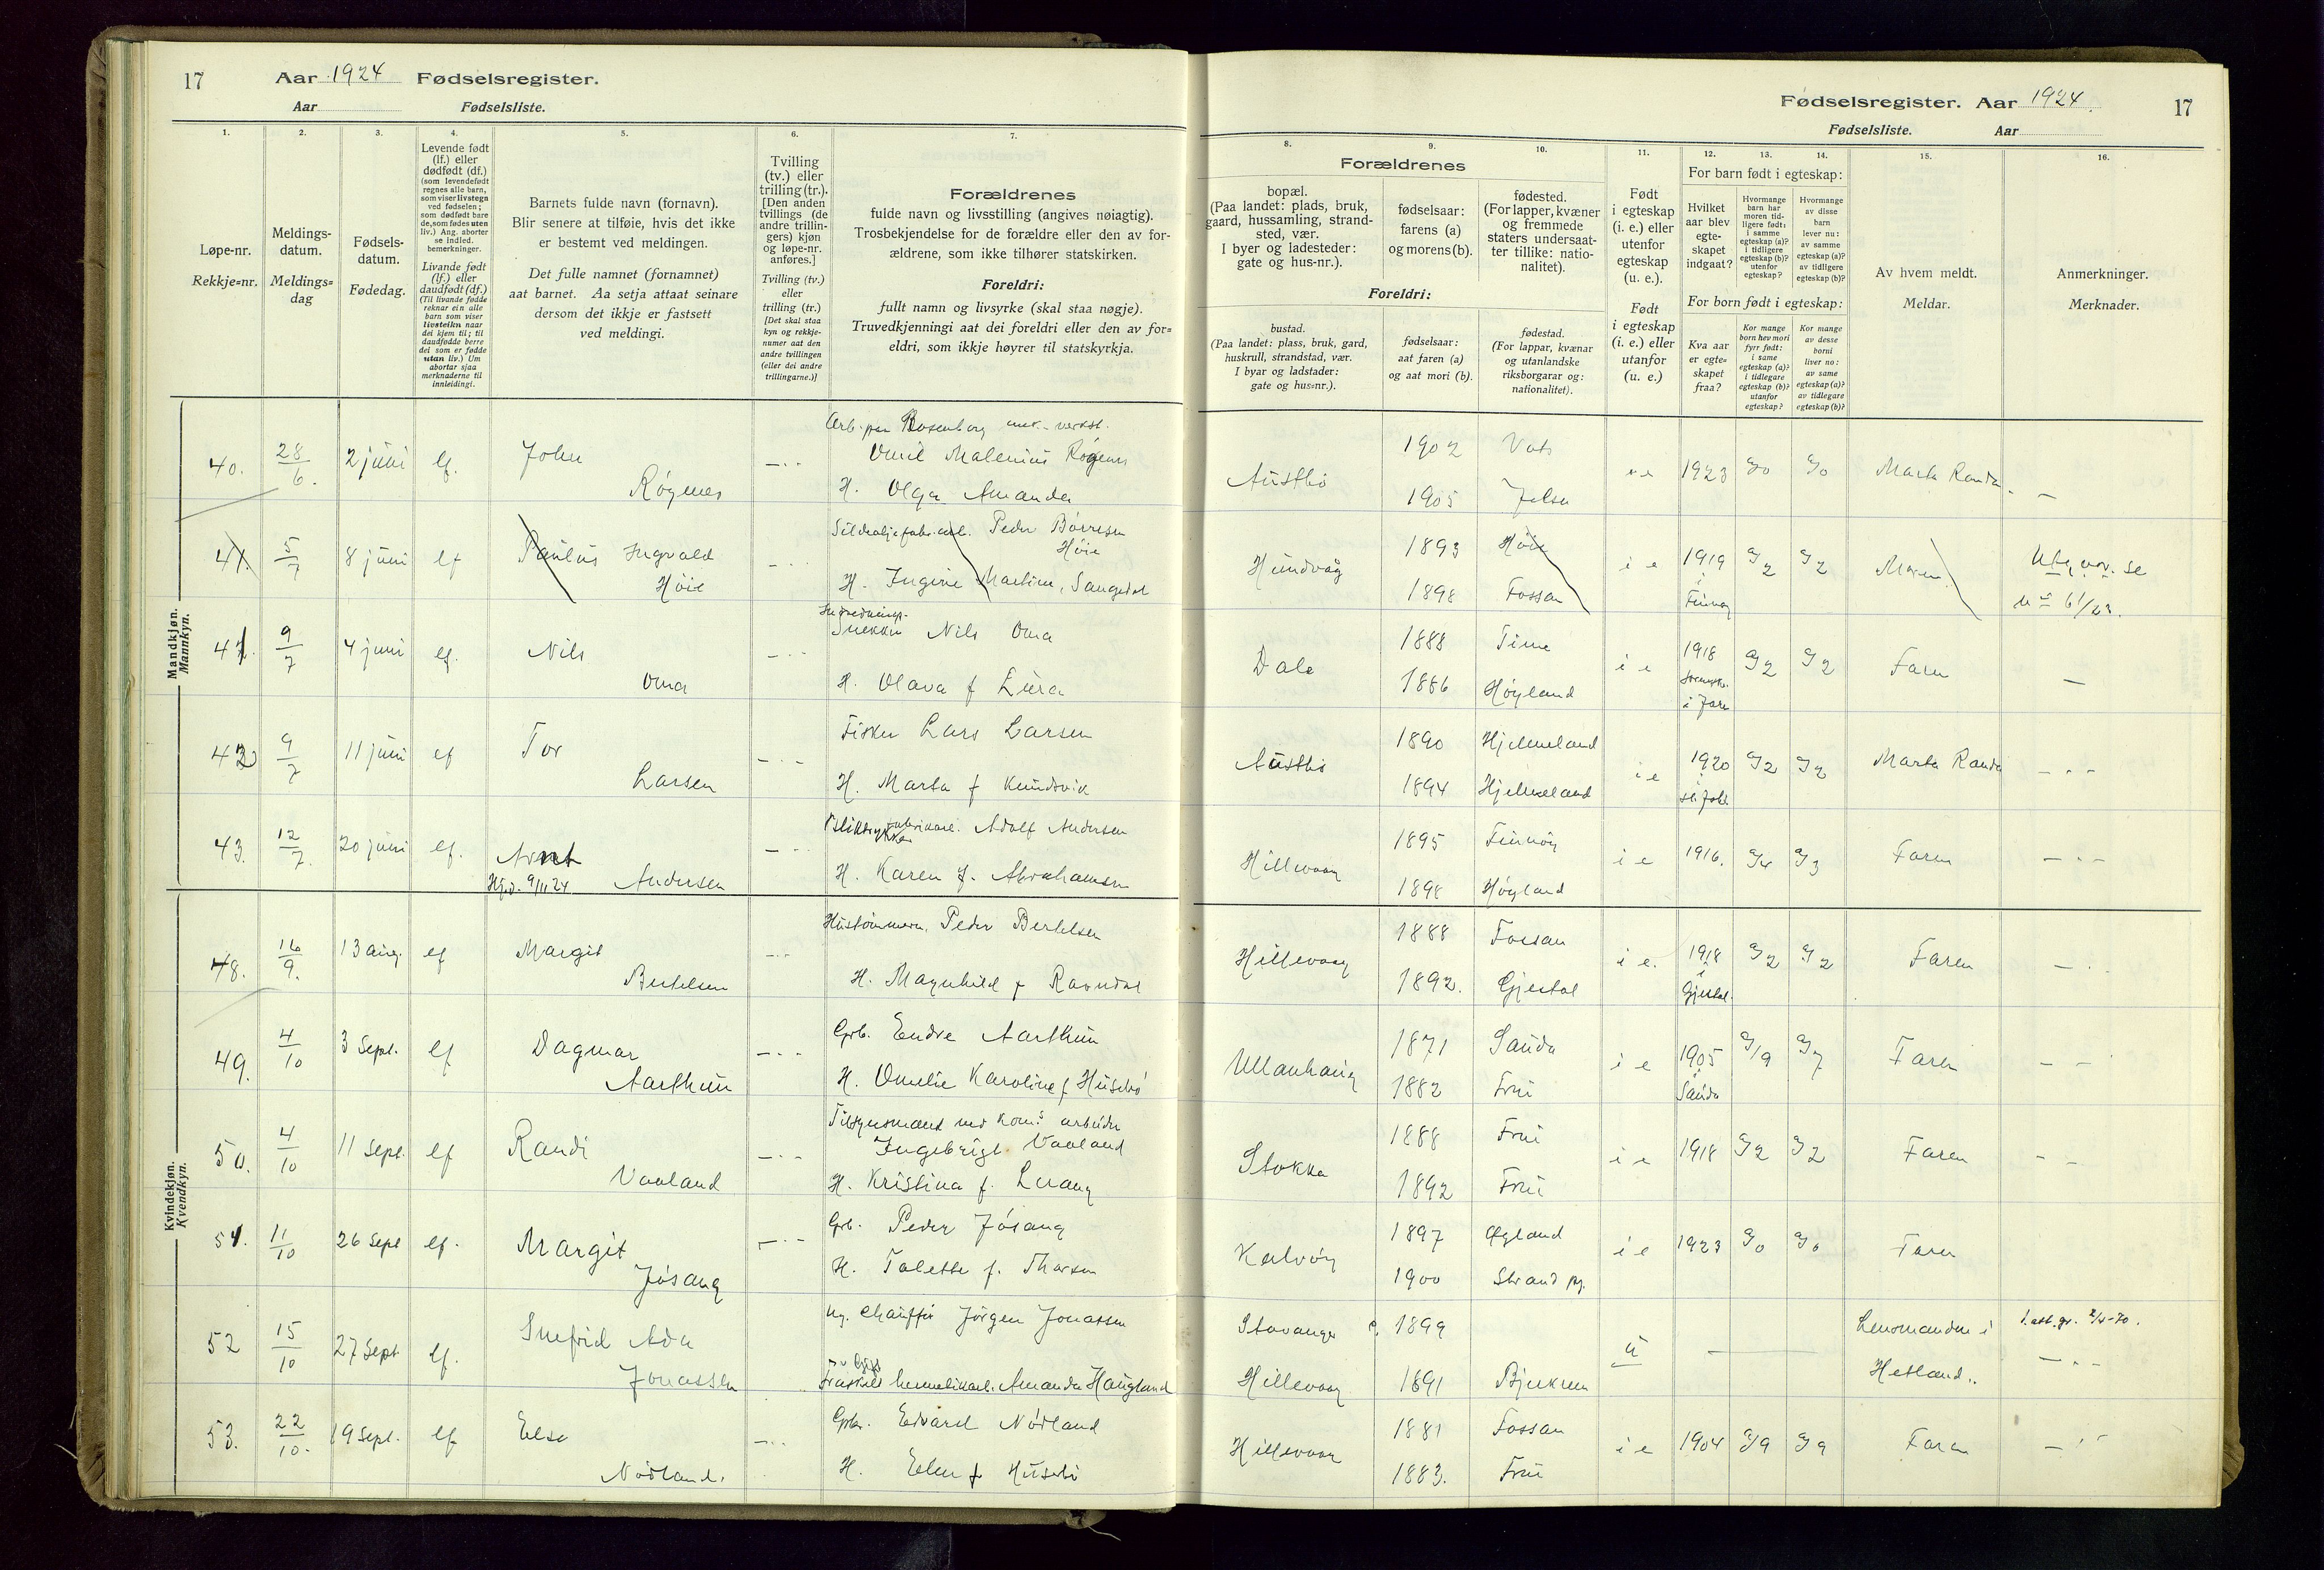 17 Aar 1924 Fødselsregister.
Aar Fødselsliste.
1. 2. 3. 4. 5. 6. 7.
Løpe-nr.
Rekkje=nr.
Meldings-
datum.
Meldings=
dag
Fødsels-
datum.
Fødedag.
Levende født
(lf.) eller
dødfødt (df.)
(som levendefødt
regnes alle barn,
som viser livstegn
ved fødselen;
som dødfødt bare
de, som fødes uten
liv.) Ang. aborter
se indled.
bemerkninger.
Livande født
(lf.) eller
daudfødt (df.)
(Til livande fødde
reknar ein alle
barn som viser
livsteikn naar
dei kjem til; til
daudfødde berre
dei som er fødde
utan liv.) Um
abortar sjaa
merknaderne til
innleidingi.
Barnets fulde navn (fornavn).
Blir senere at tilføie, hvis det ikke
er bestemt ved meldingen.
Det fulle namnet (fornamnet)
aat barnet. Aa setja attaat seinare
dersom det ikkje er fastsett
ved meldingi.
Tvilling
(tv.) eller
trilling (tr.).
[Den anden
tvillings (de
andre trillin-
gers) kjøn
og løpe-nr.
anføres.]
Tvilling (tv.)
eller
trilling (tr.)
[Det skal staa
kyn og rekkje-
numer aat den
andre tvillingen
(eller dei andre
trillingarne.)]
Forældrenes
fulde navn og livsstilling (angives nøiagtig).
Trosbekjendelse for de forældre eller den av for-
ældrene, som ikke tilhører statskirken.
Foreldri:
fullt namn og livsyrke (skal staa nøgje).
Truvedkjenningi aat dei foreldri eller den av for=
eldri, som ikkje høyrer til statskyrkja.
Mandkjøn.
Mannkyn.
40. 28/6. 2 juni lf. John Røgenes
Emil Malenius Røgenes
H. Olga Amanda
41. 5/7 8 juni lf Paulus Ingvald Høie
Peder Børresen Høie
H. Ingine Martine, Sangedal
41. 9/7 4 juni lf. Nils Oma
Snekker Nils Oma
H. Olava f Lura
42 9/7 11 juni lf Tor Larsen
Fisker Lars Larsen
H. Marta f
43. 12/7. 20 juni lf. Arnt Andersen
Hj.d. 9/11 24
Adolf Andersen
H. Karen f. Abrahamsen
Kvindekjøn.
Kvendkyn.
48. 16/9. 13 aug. lf Margit Bertelsen
Peder Bertelsen
H. Magnhild f Ravndal
49. 4/10 3 Sept. lf Dagmar Aarthun
Grb. Endre Aarthun
H. Emelie Karoline f Husebø
50. 4/10 11 Sept. lf Randi Vaaland
Tilsynsmand ved kom.s arbeider
Ingebrigt Vaaland
H. Kristina f.
51. 11/10 26 Sept lf. Margit Jøsang
Grb. Peder Jøsang
H. Talette f. Thorsen
52 15/10 27 Sept lf. Snefrid Ada Jonassen
Ug. Chauffør Jørgen Jonassen
Amanda Haugland
53. 22/10. 19 Sept. lf Else Nødland.
Grbr. Edvard Nødland
H. Elen f Husebø
Fødselsregister. Aar 1924. 17
Fødselsliste. Aar
8. 9. 10. 11. 12. 13. 14. 15. 16.
Forældrenes
bopæl.
(Paa landet: plads, bruk,
gaard, hussamling, strand-
sted, vær.
I byer og ladesteder:
gate og hus-nr.).
fødselsaar:
farens (a)
og morens (b).
fødested.
(For lapper, kvæner
og fremmede
staters undersaat-
ter tillike: natio-
nalitet).
Foreldri:
bustad.
(Paa landet: plass, bruk, gard,
huskrull, strandstad, vær.
I byar og ladstader:
gate og hus=nr.).
fødselsaar:
aat faren (a)
og aat mori (b).
fødestad.
(For lappar, kvænar
og utanlandske
riksborgarar og:
nationalitet).
Født
i egteskap
(i. e.) eller
utenfor
egteskap
(u. e.).
Født
i egteskap
(i. e.) eller
utanfor
(u. e.)
For barn født i egteskap:
Hvilket
aar blev
egte-
skapet
indgaat?
Hvormange
barn har
moren tid-
ligere født:
i samme
egteskap (a)?
i tidligere
egteskap (b)?
utenfor
egteskap?
Hvormange
av disse
barn
lever nu:
av samme
egteskap (a)?
av tidligere
egteskap (b)?
For born født i egteskap:
Kva aar
er egte=
skapet
fraa?
Kor mange
born hev mori
fyrr født:
i same
egteskap (a)?
i tidlegare
egteskap (b)?
utanfor
egteskap?
Kor mange
av desse
borni
liver no:
av same
egteskap (a)?
av tidlegare
egteskap (b)?
Av hvem meldt.
Meldar.
Anmerkninger.
Merknader.
Austbø 1902 Vats 1923 Marta Randa
1905 Jelsa
Hundvåg 1893 Høie i e 1919 Moren
1898 Fossan Finnøy
Dale 1888 Time i e 1918 Faren
1886 Høyland
Austbø 1890 Hjelmeland i e 1920 Marta Randa
1894 Hjelmeland
Hillevaag 1895 Finnøy i e 1916. Faren
1898 Høyland
Hillevaag 1888 Fossan i e. 1918 Faren
1892. Gjestal i Gjestal.
Ullenhaug 1871 Sauda i e 1905 Faren
1882 Frue i Sauda
Stokka 1888 Frue i e 1918 Faren
1892 Frue
Kalvøy 1897 Øgland i e 1923 Faren
1900 Strand pg.
Stavanger 1899 u Lensmanden i
Hillevaag 1891 Bjerkrem Hetland.
Hillevaag 1881 Fossan i e 1904 Faren
1883. Frue